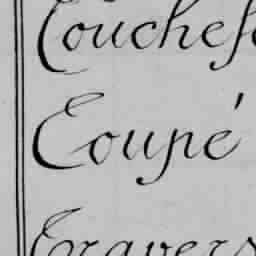 Couches
Coupé
Travers